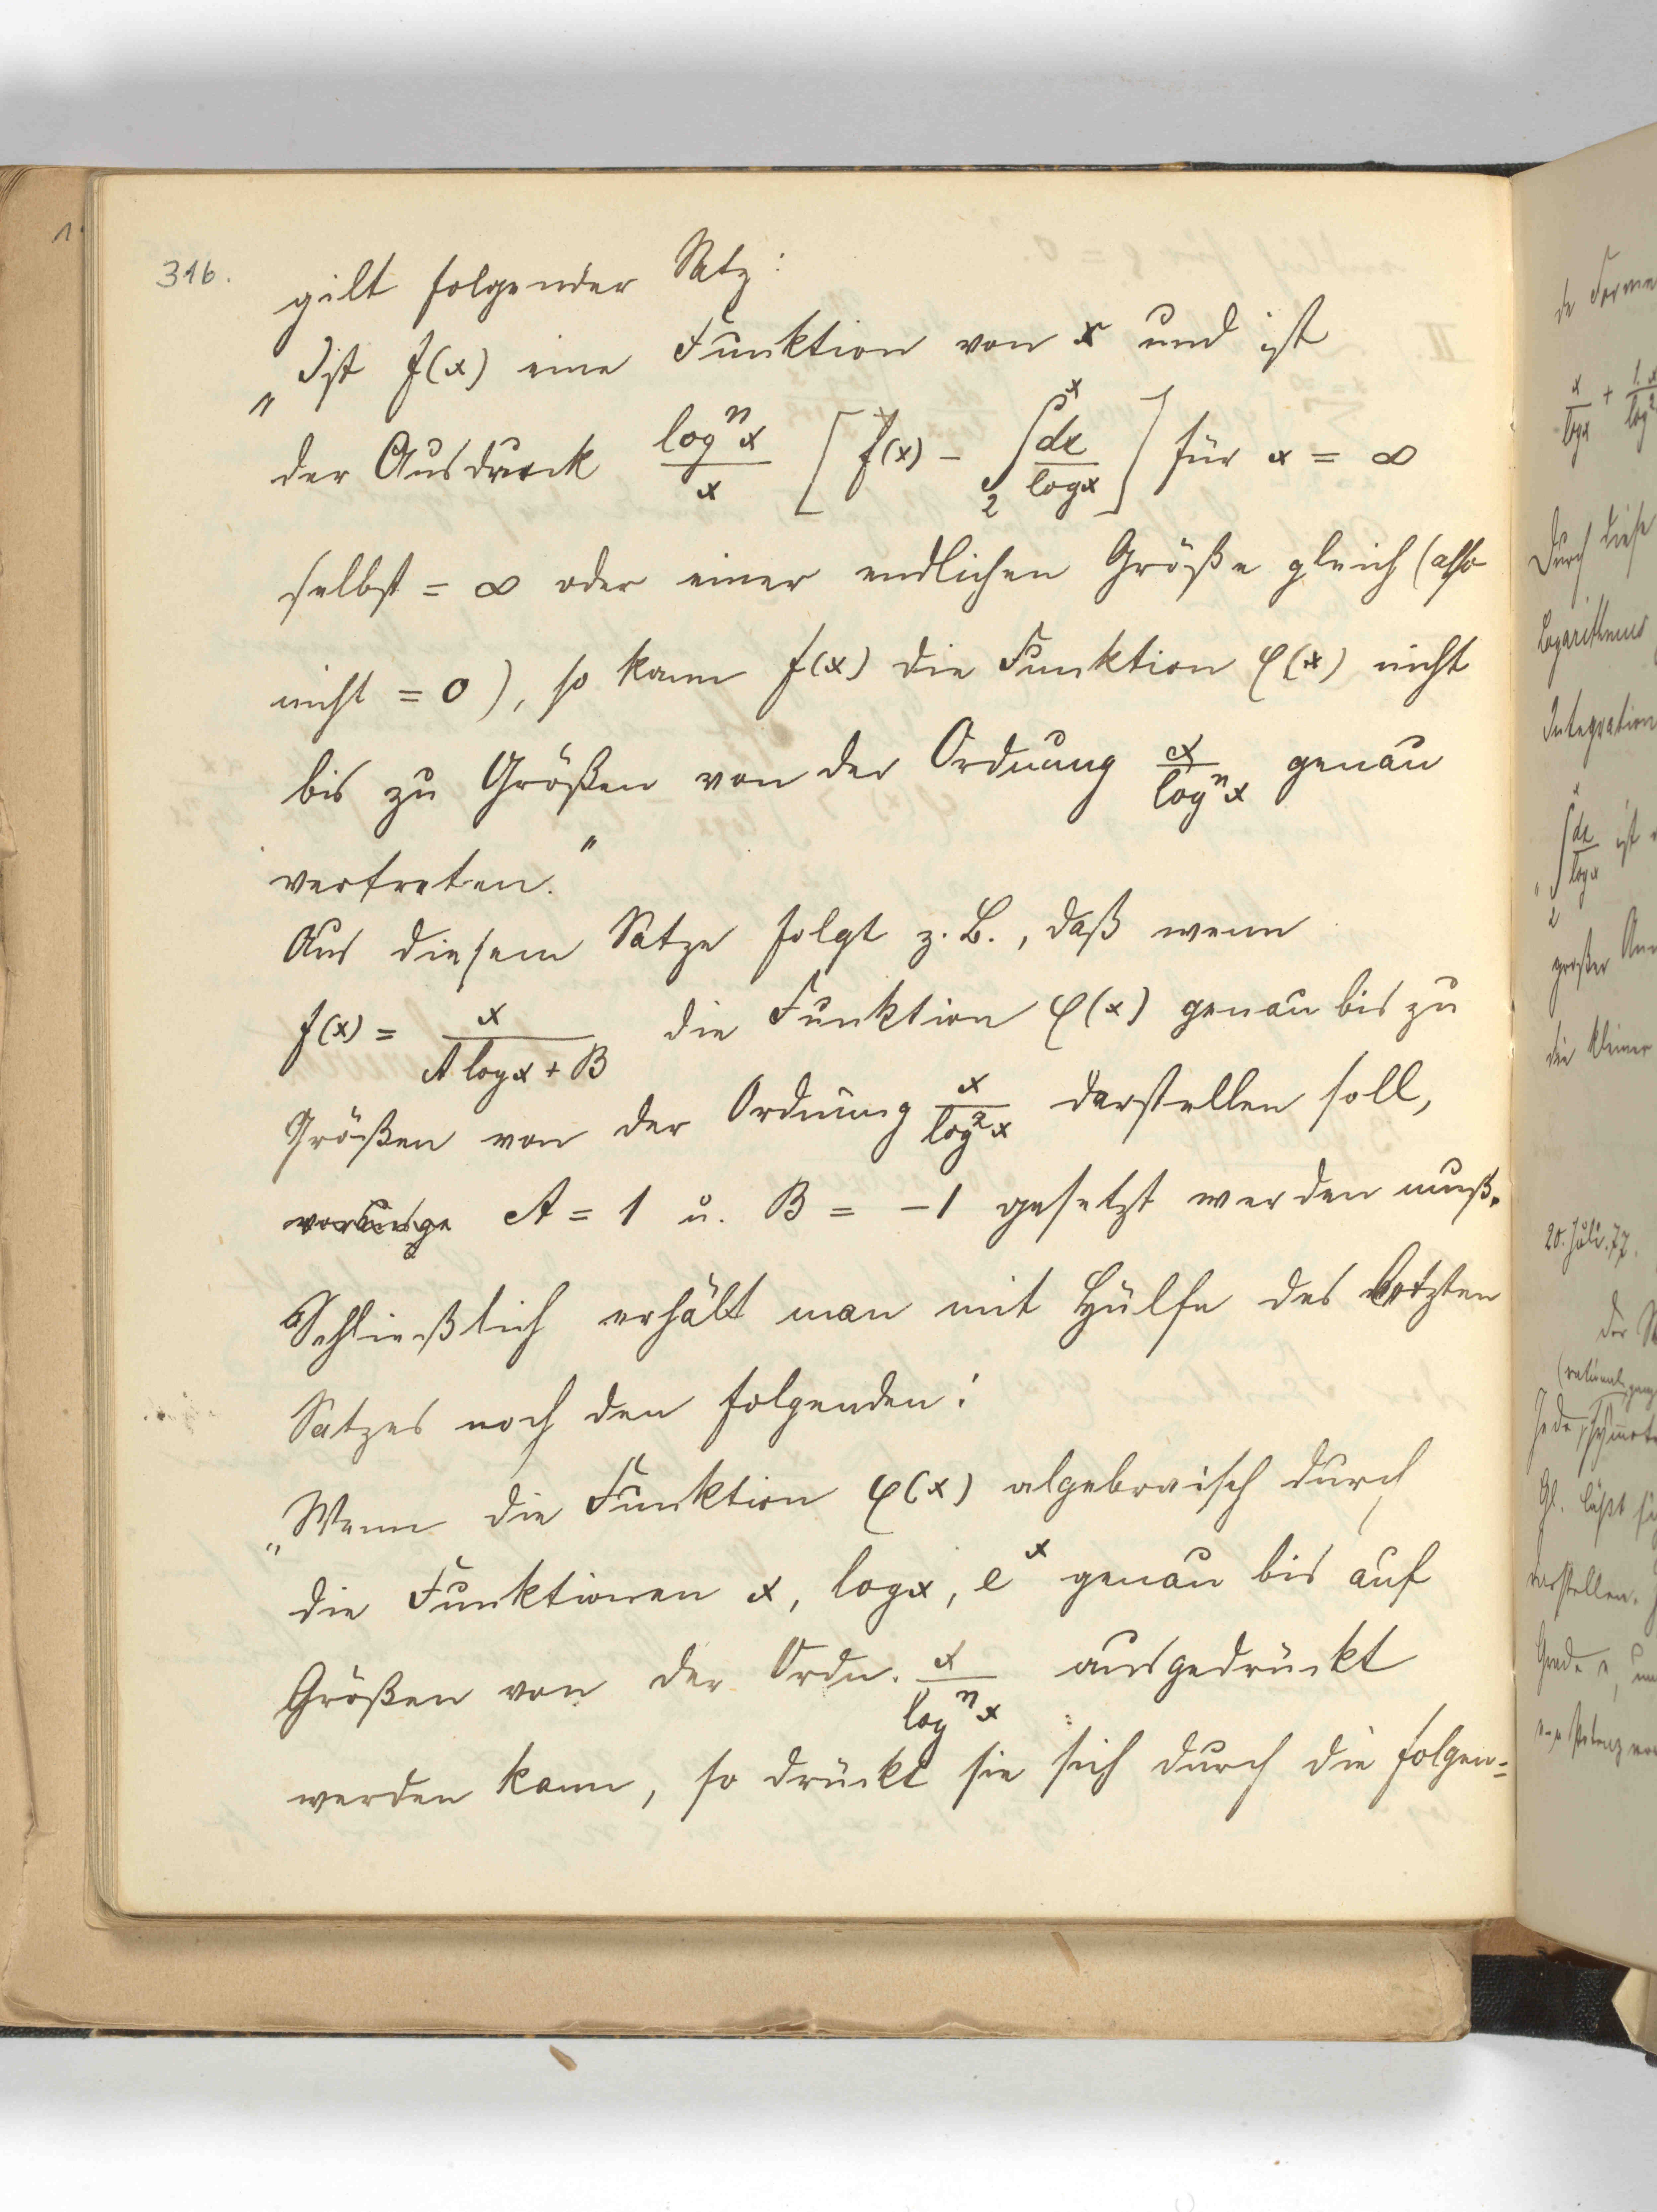 316.
gilt folgender Satz:
„Ist f(x) eine Funktion von x und ist
der Ausdruck logⁿx/x [f(x) − ∫₂ˣ dx/logx] für x = ∞
selbst = ∞ oder einer endlichen Größe gleich (also
nicht = 0), so kann f(x) die Funktion φ(x) nicht
bis zu Größen von der Ordnung x/logⁿx genau
vertreten."
Aus diesem Satze folgt z. B., daß wenn
f(x) = x/(A logx + B) die Funktion φ(x) genau bis zu
Größen von der Ordnung x/log²x darstellen soll,
A = 1 u. B = −1 gesetzt werden muß.
Schließlich erhält man mit Hülfe des letzten
Satzes noch den folgenden:
„Wenn die Funktion φ(x) algebraisch durch
die Funktionen x, logx, eˣ genau bis auf
Größen von der Ordn. x/logⁿx ausgedrückt
werden kann, so drückt sie sich durch die folgen=
x/logx +
Durch diese
Logarithmus
Integration
„∫₂ˣ dx/logx ist
großer
die kleiner
20. Juli. 77.
Jede
Gl. läßt
darstellen.